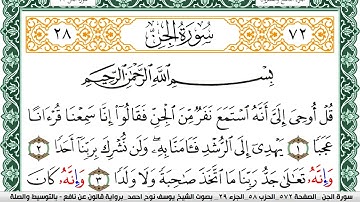 ٢٨ سُورَةُ الْجِنِّ ٧٢
بِسْمِ اللَّهِ الرَّحْمَٰنِ الرَّحِيمِ
قُلْ أُوحِيَ إِلَيَّ أَنَّهُ اسْتَمَعَ نَفَرٌ مِّنَ الْجِنِّ فَقَالُوا إِنَّا سَمِعْنَا قُرْءَانًا
عَجَبًا ١ يَهْدِي إِلَى الرُّشْدِ فَـَٔامَنَّا بِهِ وَلَن نُّشْرِكَ بِرَبِّنَا أَحَدًا ٢
وَإِنَّهُ تَعَالَىٰ جَدُّ رَبِّنَا مَا اتَّخَذَ صَاحِبَةً وَلَا وَلَدًا ٣ وَإِنَّهُ كَانَ
سورة الجن - الصفحة ٥٧٢ - الحزب ٥٨ - الجزء ٢٩ - بصوت الشيخ يوسف نوح احمد - برواية قالون عن نافع - بالتوسيط والصلة